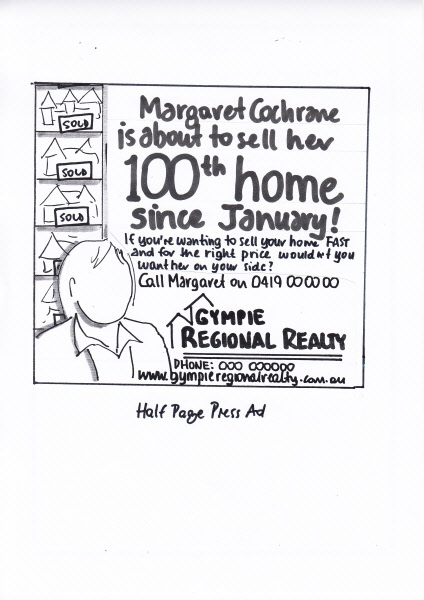 SOLD
SOLD
SOLD
Margaret Cochrane
is about to sell her
100th home
since January!
If you're wanting to sell your home FAST
and for the right price wouldn't you
want her on your side?
Call Margaret on 0419 00 00 00
GYMPIE
REGIONAL REALTY
PHONE: 000 000000
www.gympieregionalrealty.com.au
Half Page Press Ad